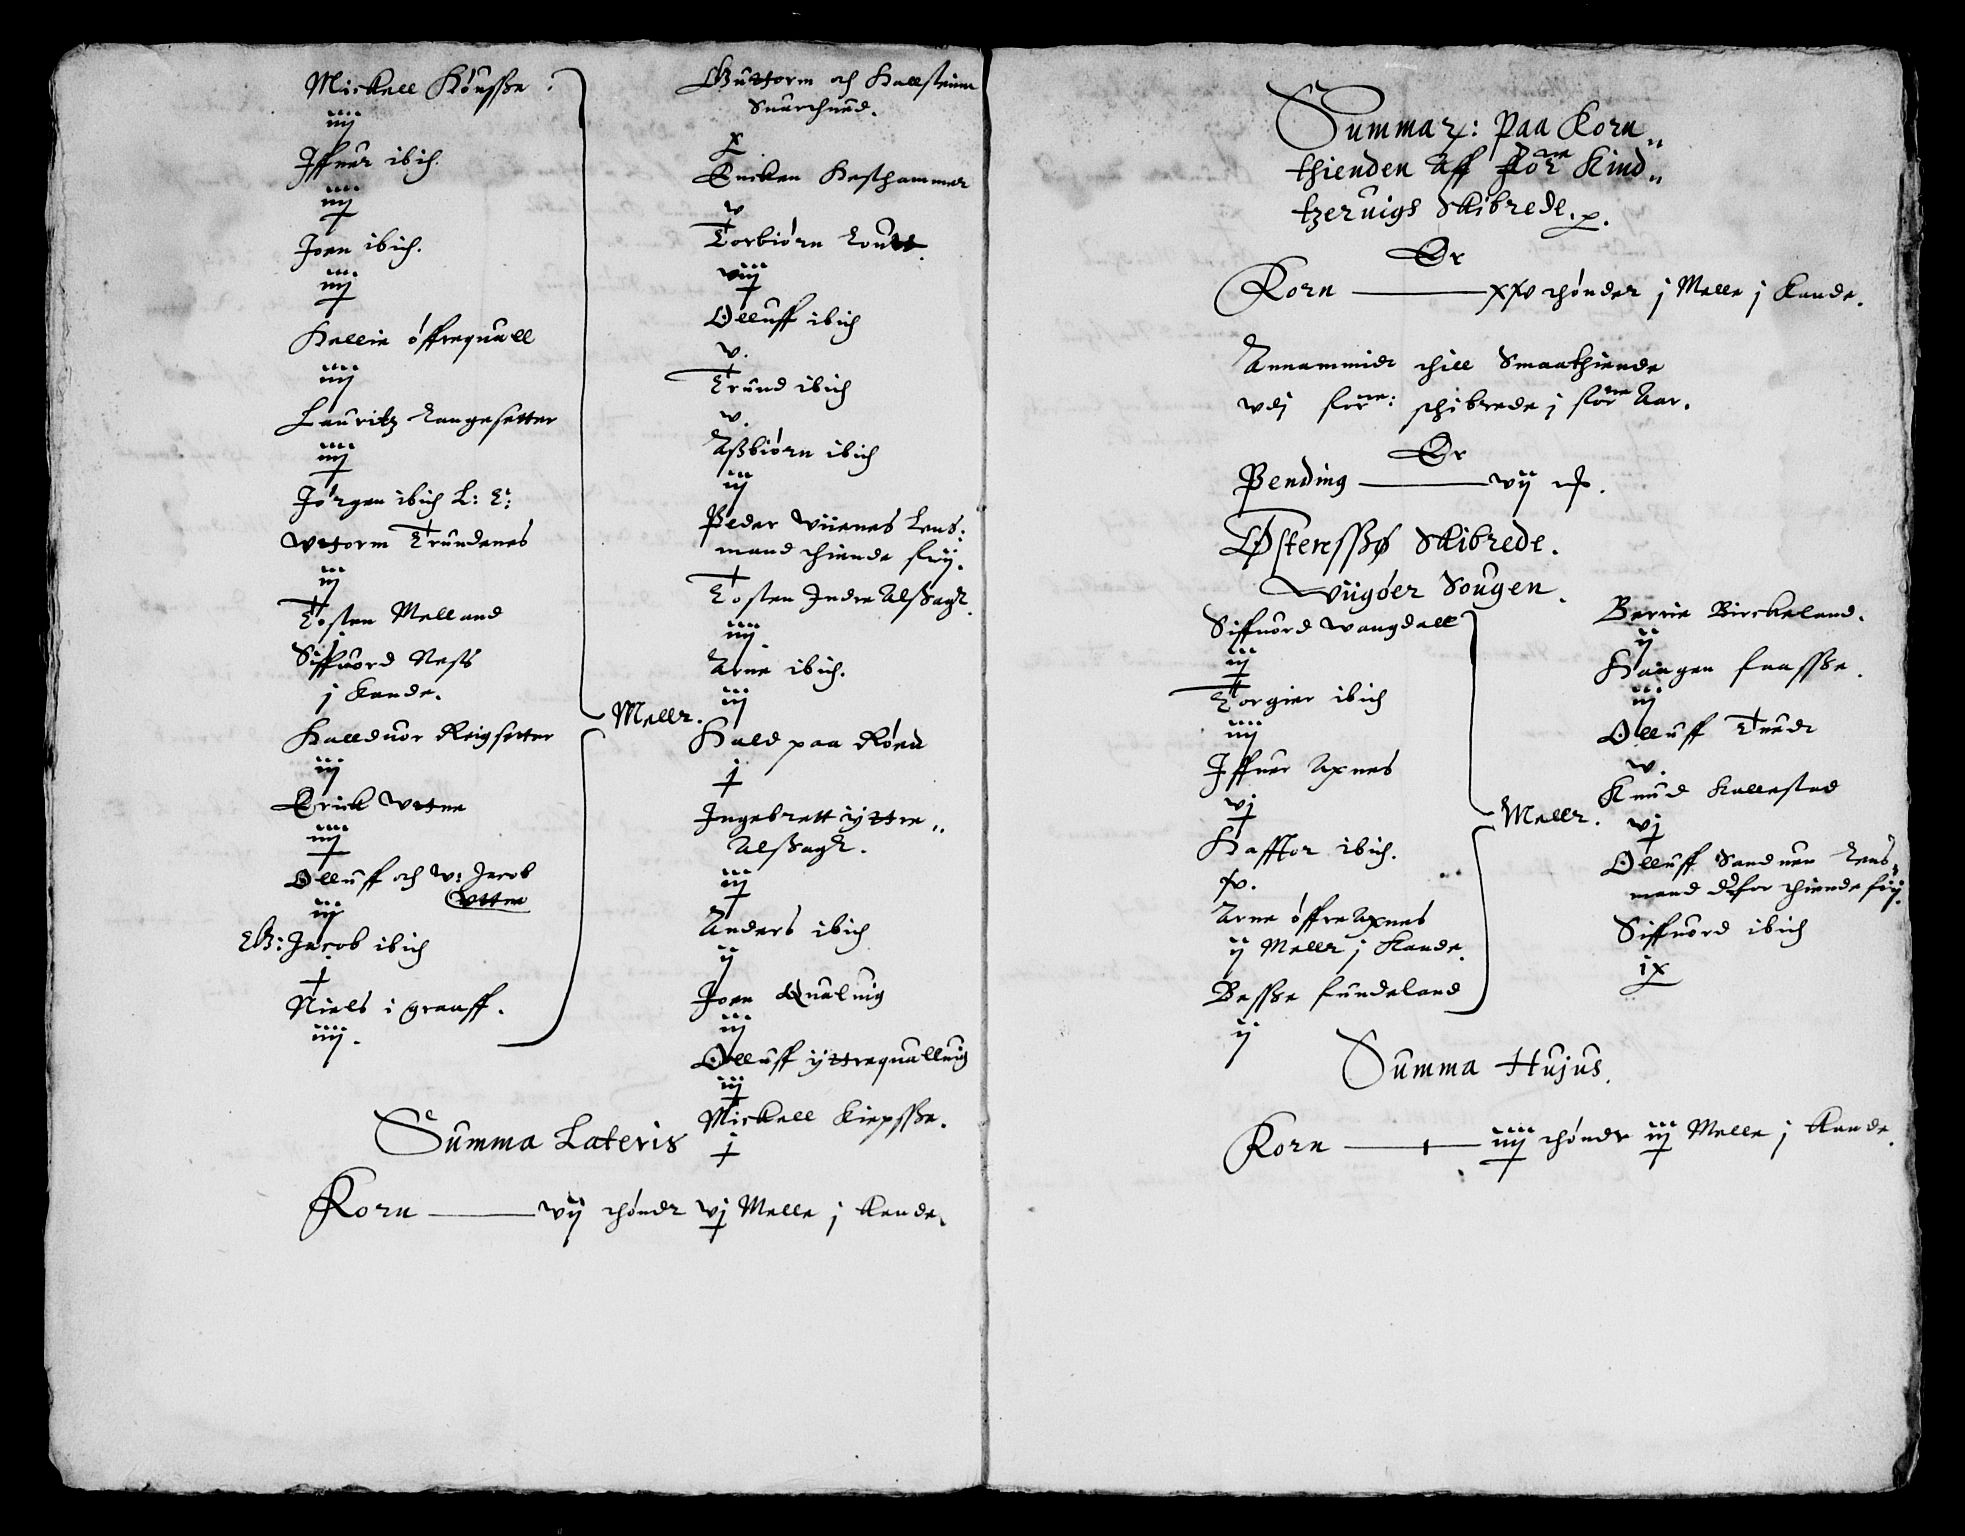 Mickell Kousße:
iiij
Iffuer ibid.
iiij
Joen ibid.
iiij
Hallie öffrequall
iiij
Lauritz Langesetter
iiij
Jörgen ibid L: E:
vttorm Trundenes
iij
Tosten Melland
j
Siffuord Ness
j Kande.
Halduor Reigsetter
iij
Erick vttne
iiij
Olluff och w: Jacob
vttne
iij
EB: Jacob ibid
j
Niels i graaff.
iiij.
Mellr.
Guttorm och Hallsteinn
x
Encken Hesthammer
v
Torbiörn Loutt.
viij
Olluff ibid
v.
Trund ibid
v.
Aßbiörn ibid
iij
Peder viienes Lens:
mand thiende frij.
Tosten Indre Alßagr.
iiij
Arne ibid.
iij
Hald paa Röen
j
Ingebrett ijttre„
Alßagr.
iij
Anders ibid
ij
Joen Qualuig
iij
Olluff ijttrequalluig
iij
Mickell Kiepsße.
j
Summa Lateris
Korn ——— vij thöndr vj Melle j Kande.
Summar: paa Korn„
thienden Aff forne Kind„
tzeruigs Skibrede.
Er
Korn ——— xxv thönder j Melle j Kande.
Annammidt thill Smaathiende
vdj forne: schibrede j forne Aar.
Er
Pending ——— vij
Østensßø Skibrede.
viigöer Sougen.
Siffuord wangdall
iij
Torgier ibid
iiij
Iffuer Axnes
vj
Hafftor ibid.
xv.
Arne öffre Axnes
ij Mellr j Kande.
Besße Lundeland
ij
Mellr.
Berrie Birckeland.
ij
Haagen faasße.
iij
Olluff Tuedt
v.
Knud Kallestad
vj
Olluff Sanduen Lens„
mand derfor thiende frij.
Siffuord ibid
ix
Summa Hujus.
Korn ——— iiij thöndr iij Melle j Kande.